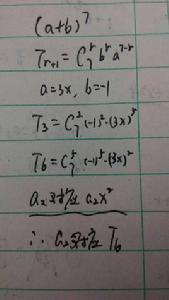 (a+b)⁷
Tᵣ₊₁ = C₇ʳ bʳ a⁷⁻ʳ
a=3x, b=-1
T₃ = C₇² (-1)²·(3x)⁵
T₆ = C₇⁵ (-1)⁵·(3x)²
a₂对应 a₂x²
∴ a₂对应 T₆